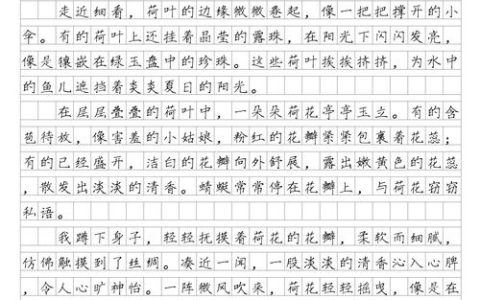 走近细看，荷叶的边缘微微卷起，像一把把撑开的小
伞。有的荷叶上还挂着晶莹的露珠，在阳光下闪闪发亮，
像是镶嵌在绿玉盘中的珍珠。这些荷叶挨挨挤挤，为水中
的鱼儿遮挡着炎炎夏日的阳光。
在层层叠叠的荷叶中，一朵朵荷花亭亭玉立。有的含
苞待放，像害羞的小姑娘，粉红的花瓣紧紧包裹着花蕊；
有的已经盛开，洁白的花瓣向外舒展，露出嫩黄色的花蕊
，散发出淡淡的清香。蜻蜓常常停在花瓣上，与荷花窃窃
私语。
我蹲下身子，轻轻抚摸着荷花的花瓣，柔软而细腻，
仿佛触摸到了丝绸。凑近一闻，一股淡淡的清香沁入心脾
，令人心旷神怡。一阵微风吹来，荷花轻轻摇曳，像是在